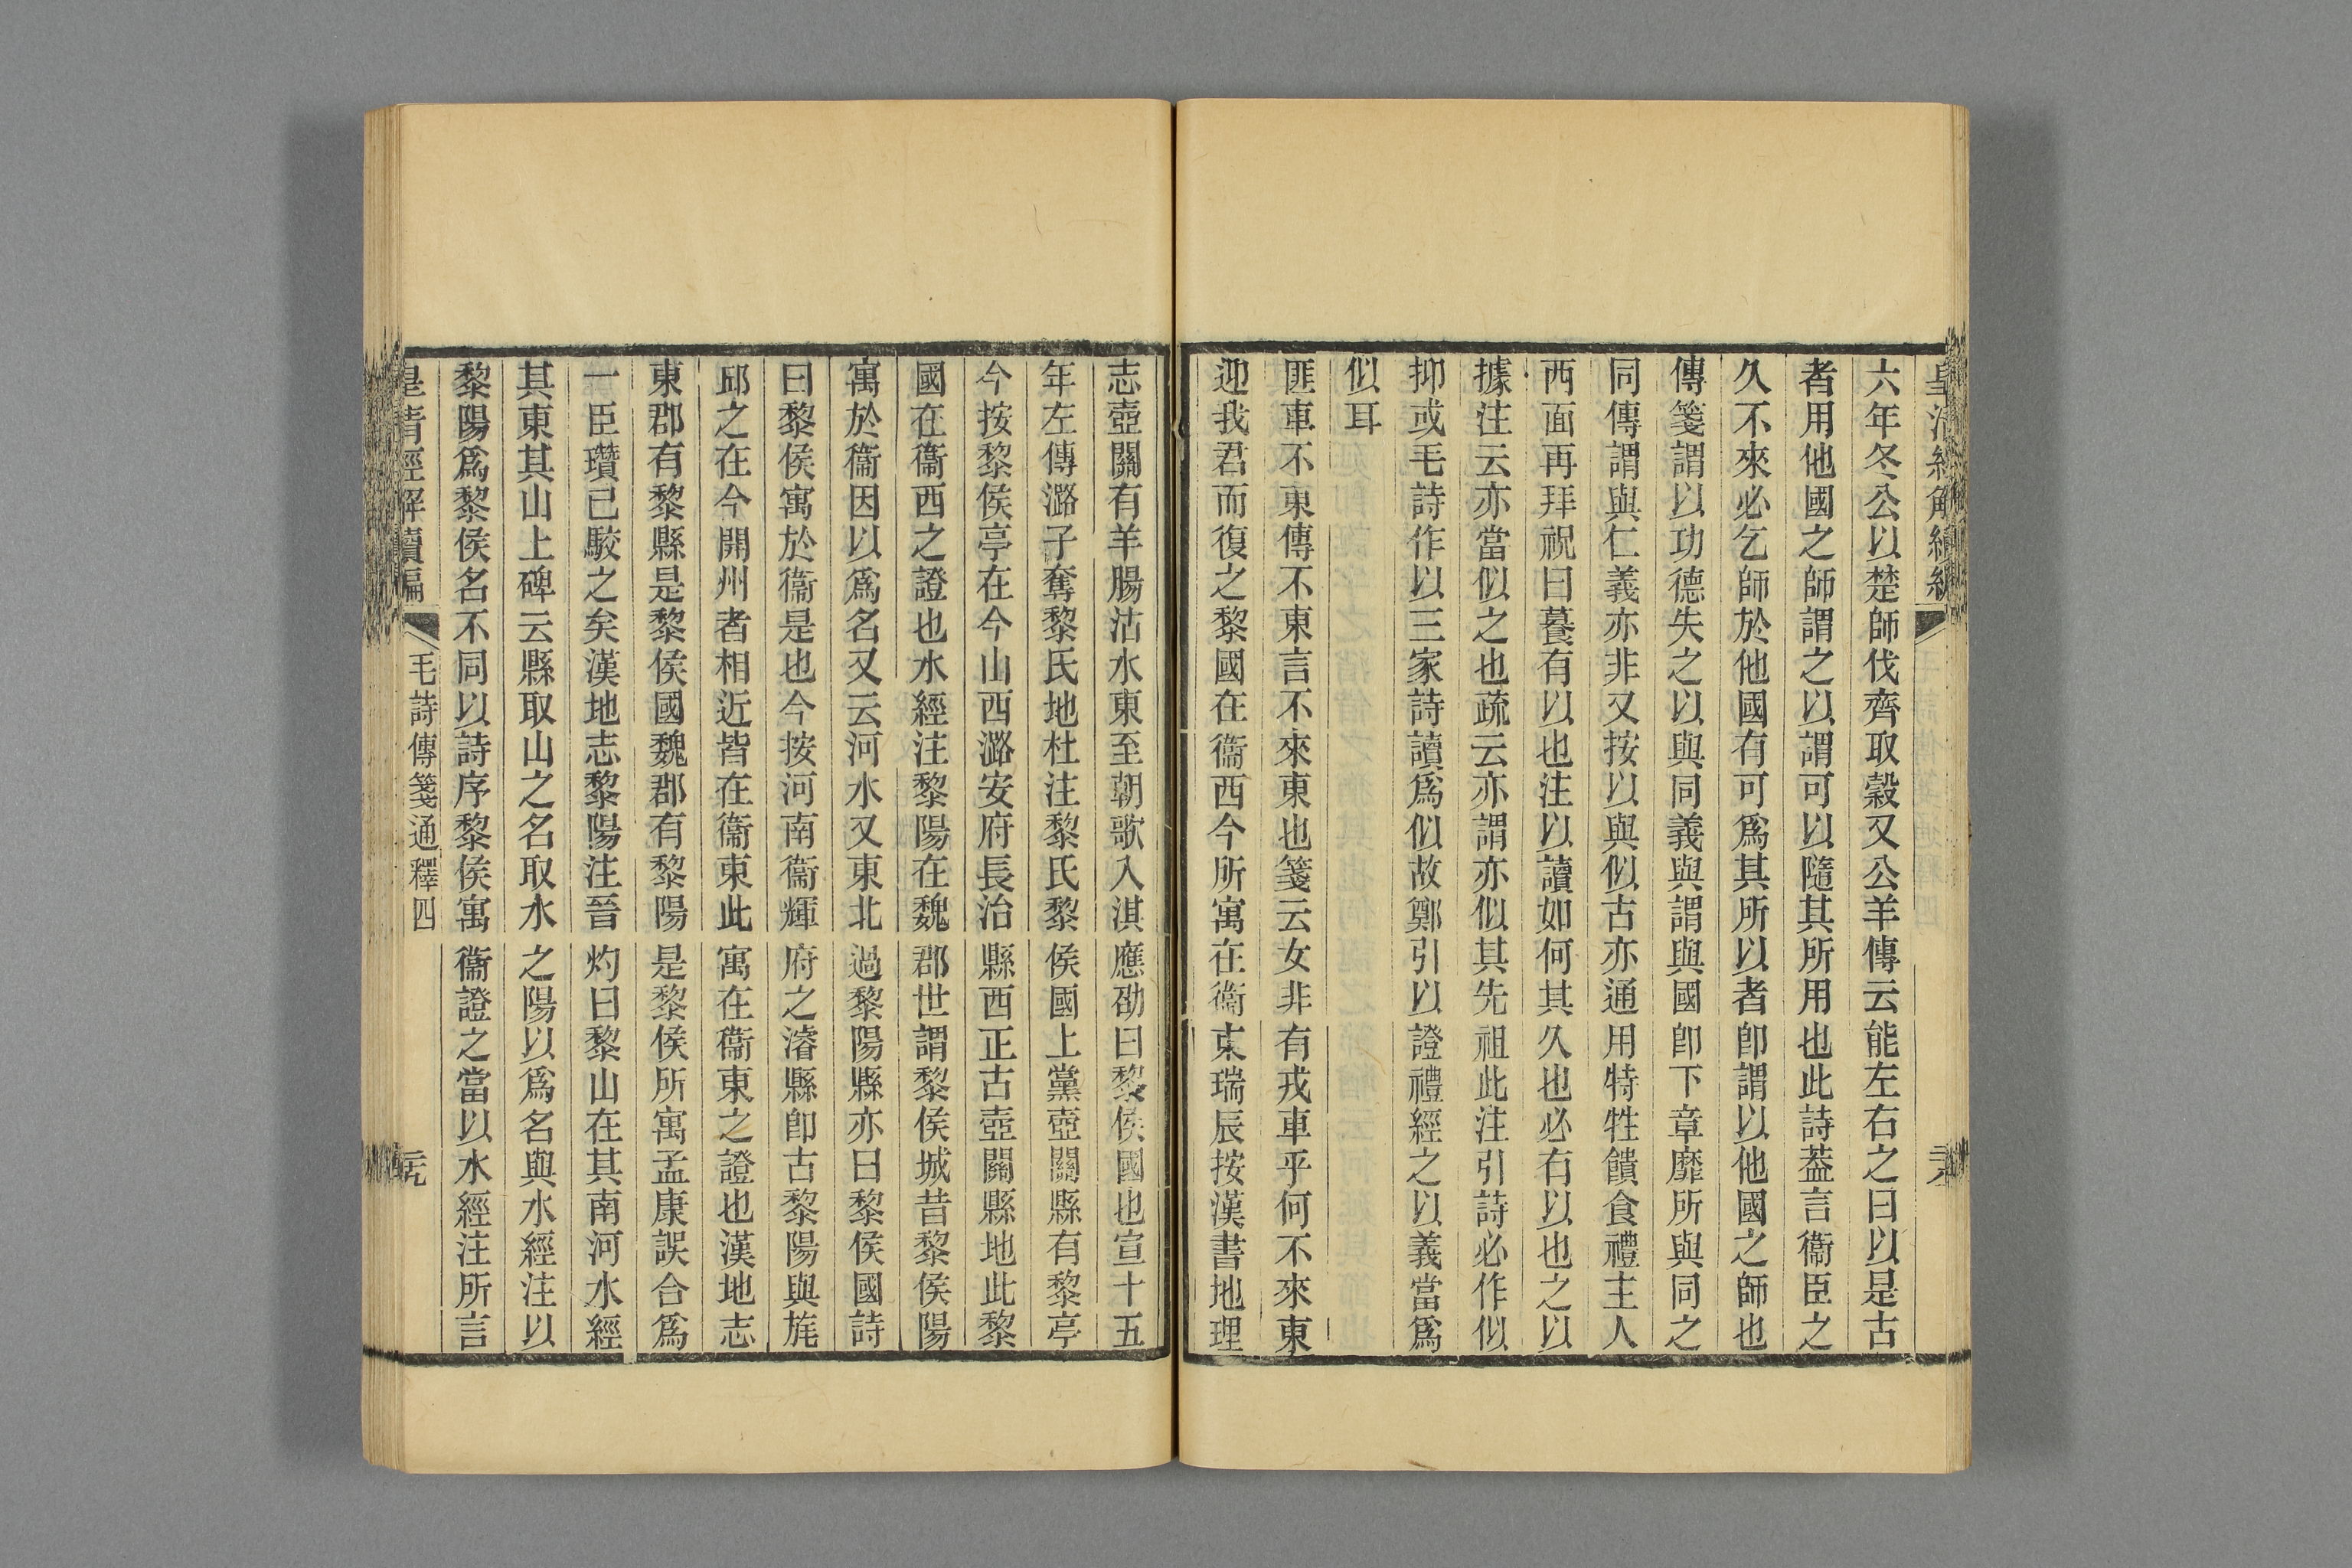 皇清經解續編
六年冬公以楚師伐齊取穀又公羊傳云能左右之曰以是古
者用他國之師謂之以謂可以隨其所用也此詩葢言衞臣之
久不來必乞師於他國有可爲其所以者卽謂以他國之師也
傳箋謂以功德失之以與同義與謂與國卽下章靡所與同之
同傳謂與仁義亦非又按以與似古亦通用特牲饋食禮主人
西面再拜祝曰養有以也注以讀如何其久也必有以也之以
據注云亦當似之也疏云亦謂亦似其先祖此注引詩必作似
抑或毛詩作以三家詩讀爲似故鄭引以證禮經之以義當爲
似耳
匪車不東傳不東言不來東也箋云女非有戎車乎何不來東
迎我君而復之黎國在衞西今所寓在衞東瑞辰按漢書地理
志壺關有羊腸沾水東至朝歌入淇應劭曰黎侯國也宣十五
年左傳潞子奪黎氏地杜注黎氏黎侯國上黨壺關縣有黎亭
今按黎侯亭在今山西潞安府長治縣西正古壺關縣地此黎
國在衞西之證也水經注黎陽在魏郡世謂黎侯城昔黎侯陽
寓於衞因以爲名又云河水又東北過黎陽縣亦曰黎侯國詩
曰黎侯寓於衞是也今按河南衞輝府之濬縣卽古黎陽與旄
邱之在今開州者相近皆在衞東此寓在衞東之證也漢地志
東郡有黎縣是黎侯國魏郡有黎陽是黎侯所寓孟康誤合爲
一臣瓚已駮之矣漢地志黎陽注晉灼曰黎山在其南河水經
其東其山上碑云縣取山之名取水之陽以爲名與水經注以
黎陽爲黎侯名不同以詩序黎侯寓衞證之當以水經注所言
皇清經解續編 毛詩傳箋通釋四